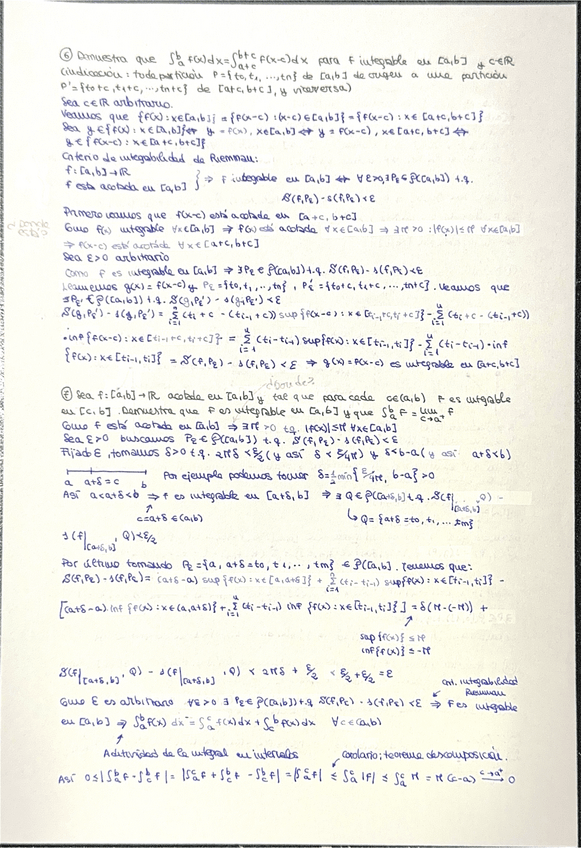 ⑥ Demuestra que ∫_a^b f(x)dx = ∫_{a+c}^{b+c} f(x-c)dx para f integrable en [a,b] y c∈ℝ
(indicación: toda partición P={t0,t1,...,tn} de [a,b] da origen a una partición
P'={t0+c, t1+c, ...,tn+c} de [a+c,b+c], y viceversa)
Sea c∈ℝ arbitrario.
Veamos que {f(x): x∈[a,b]} = {f(x-c) : (x-c)∈[a,b]} = {f(x-c) : x∈[a+c,b+c]}
Sea y∈{f(x): x∈[a,b]} ⇔ y = f(x), x∈[a,b] ⇔ y = f(x-c), x∈[a+c,b+c] ⇔
y∈{f(x-c): x∈[a+c,b+c]}
Criterio de integrabilidad de Riemnau:
f: [a,b]→ℝ
f está acotada en [a,b] } ⇒ f integrable en [a,b] ⇔ ∀ε>0, ∃Pε∈P([a,b]) t.q.
S(f,Pε) - s(f,Pε) < ε
Primero veamos que f(x-c) está acotada en [a+c, b+c]
Como f(x) integrable ∀x∈[a,b] ⇒ f(x) está acotada ∀x∈[a,b] ⇒ ∃M>0 : |f(x)|≤M ∀x∈[a,b]
⇒ f(x-c) está acotada ∀x∈[a+c,b+c]
Sea ε>0 arbitrario
Como f es integrable en [a,b] ⇒ ∃Pε∈P([a,b]) t.q. S(f,Pε) - s(f,Pε) < ε
Llamemos g(x) = f(x-c) y Pε={t0,t1,...,tn}, Pε'={t0+c, t1+c, ...,tn+c}. Veamos que
∃Pε'∈P([a,b]) t.q. S(g,Pε') - s(g,Pε') < ε
S(g,Pε') - s(g,Pε') = Σ_{i=1}^n (ti+c - (ti-1+c)) sup{f(x-c): x∈[ti-1+c,ti+c]} - Σ_{i=1}^n (ti+c - (ti-1+c))
· inf{f(x-c): x∈[ti-1+c,ti+c]} = Σ_{i=1}^n (ti-ti-1) sup{f(x): x∈[ti-1,ti]} - Σ_{i=1}^n (ti-ti-1)·inf
{f(x): x∈[ti-1,ti]} = S(f,Pε) - s(f,Pε) < ε ⇒ g(x)=f(x-c) es integable en [a+c,b+c]
⑦ Sea f: [a,b]→ℝ acotada en [a,b] y tal que para cada c∈(a,b) f es integrable
en [c,b]. Demuestra que f es integrable en [a,b] y que ∫_a^b f = lim_{c→a+} ∫_c^b f
Como f está acotada en [a,b] ⇒ ∃M>0 t.q. |f(x)|≤M ∀x∈[a,b]
Sea ε>0 buscamos Pε∈P([a,b]) t.q. S(f,Pε) - s(f,Pε) < ε
Fijado ε, tomamos δ>0 t.q. 2Mδ<ε/2 (y así δ<ε/4M) y δ<b-a (y así a+δ<b)
a a+δ=c b
Por ejemplo podemos tomar δ=½min{ε/4M, b-a}>0
Así a<a+δ<b ⇒ f es integrable en [a+δ,b] ⇒ ∃Q∈P([a+δ,b]) t.q. S(f|[a+δ,b], Q) -
c=a+δ∈(a,b)
Q={a+δ=t0, t1, ...tm}
s(f|[a+δ,b], Q) < ε/2
Por último tomando Pε={a, a+δ=t0, t1, ..., tm} ∈ P([a,b]. Tenemos que:
S(f,Pε) - s(f,Pε) = (a+δ-a) sup{f(x): x∈[a,a+δ]} + Σ_{i=1}^n (ti-ti-1) sup{f(x): x∈[ti-1,ti]} -
[(a+δ-a) inf{f(x): x∈(a,a+δ]} + Σ_{i=1}^n (ti-ti-1) inf{f(x): x∈[ti-1,ti]}] = δ(M-(-M)) +
sup{f(x)} ≤ M
inf{f(x)} ≥ -M
S(f|[a+δ,b], Q) - s(f|[a+δ,b], Q) < 2Mδ + ε/2 < ε/2 + ε/2 = ε
crit. integrabilidad
Riemnau
Como ε es arbitrario ∀ε>0 ∃Pε∈P([a,b]) t.q. S(f,Pε) - s(f,Pε) < ε ⇒ f es integrable
en [a,b] ⇒ ∫_a^b f(x) dx = ∫_a^c f(x)dx + ∫_c^b f(x)dx ∀c∈(a,b)
Aditividad de la integral en intervalos
Corolario: teorema descomposición.
Así 0 ≤ |∫_a^b f - ∫_c^b f| = |∫_a^c f + ∫_c^b f - ∫_c^b f| = |∫_a^c f| ≤ ∫_a^c |f| ≤ ∫_a^c M = M(c-a) →(c→a+) 0